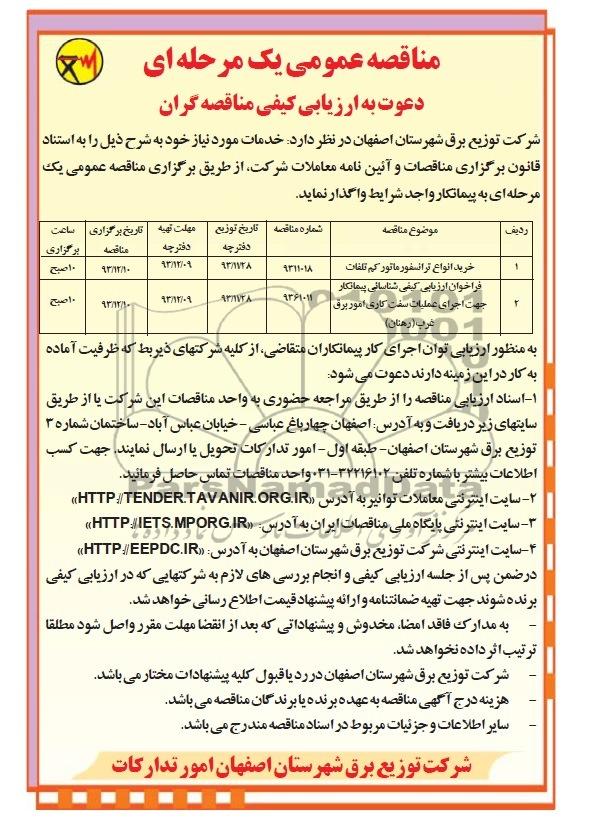 مناقصه عمومی یک مرحله ای
دعوت به ارزیابی کیفی مناقصه گران
شرکت توزیع برق شهرستان اصفهان در نظر دارد: خدمات مورد نیاز خود به شرح ذیل را به استناد
قانون برگزاری مناقصات و آئین نامه معاملات شرکت، از طریق برگزاری مناقصه عمومی یک
مرحله ای به پیمانکار واجد شرایط واگذار نماید.
ردیف موضوع مناقصه شماره مناقصه تاریخ توزیع دفترچه مهلت تهیه دفترچه تاریخ برگزاری مناقصه ساعت برگزاری
۱ خرید انواع ترانسفورماتور کم تلفات ۹۳۱۱۰۱۸ ۹۳/۱۱/۲۸ ۹۳/۱۲/۰۹ ۹۳/۱۲/۱۰ ۱۰صبح
۲ فراخوان ارزیابی کیفی شناسائی پیمانکار جهت اجرای عملیات سفت کاری امور برق غرب (رهنان) ۹۳۶۱۰۱۱ ۹۳/۱۱/۲۸ ۹۳/۱۲/۰۹ ۹۳/۱۲/۱۰ ۱۰صبح
به منظور ارزیابی توان اجرای کار پیمانکاران متقاضی، از کلیه شرکتهای ذیربط که ظرفیت آماده
به کار در این زمینه دارند دعوت می شود:
۱-اسناد ارزیابی مناقصه را از طریق مراجعه حضوری به واحد مناقصات این شرکت یا از طریق
سایتهای زیر دریافت و به آدرس: اصفهان چهارباغ عباسی - خیابان عباس آباد-ساختمان شماره ۳
توزیع برق شهرستان اصفهان- طبقه اول - امور تدارکات تحویل یا ارسال نمایند. جهت کسب
اطلاعات بیشتر با شماره تلفن ۳۲۲۱۶۱۰۲-۰۳۱ واحد مناقصات تماس حاصل فرمائید.
۲-سایت اینترنتی معاملات توانیر به آدرس «HTTP://TENDER.TAVANIR.ORG.IR»
۳-سایت اینترنتی پایگاه ملی مناقصات ایران به آدرس: «HTTP://IETS.MPORG.IR»
۴-سایت اینترنتی شرکت توزیع برق شهرستان اصفهان به آدرس: «HTTP://EEPDC.IR»
درضمن پس از جلسه ارزیابی کیفی و انجام بررسی های لازم به شرکتهایی که در ارزیابی کیفی
برنده شوند جهت تهیه ضمانتنامه و ارائه پیشنهاد قیمت اطلاع رسانی خواهد شد.
- به مدارک فاقد امضا، مخدوش و پیشنهاداتی که بعد از انقضا مهلت مقرر واصل شود مطلقا
ترتیب اثر داده نخواهد شد.
- شرکت توزیع برق شهرستان اصفهان در رد یا قبول کلیه پیشنهادات مختار می باشد.
- هزینه درج آگهی مناقصه به عهده برنده یا برندگان مناقصه می باشد.
- سایر اطلاعات و جزئیات مربوط در اسناد مناقصه مندرج می باشد.
شرکت توزیع برق شهرستان اصفهان امور تدارکات
ParsNamadData